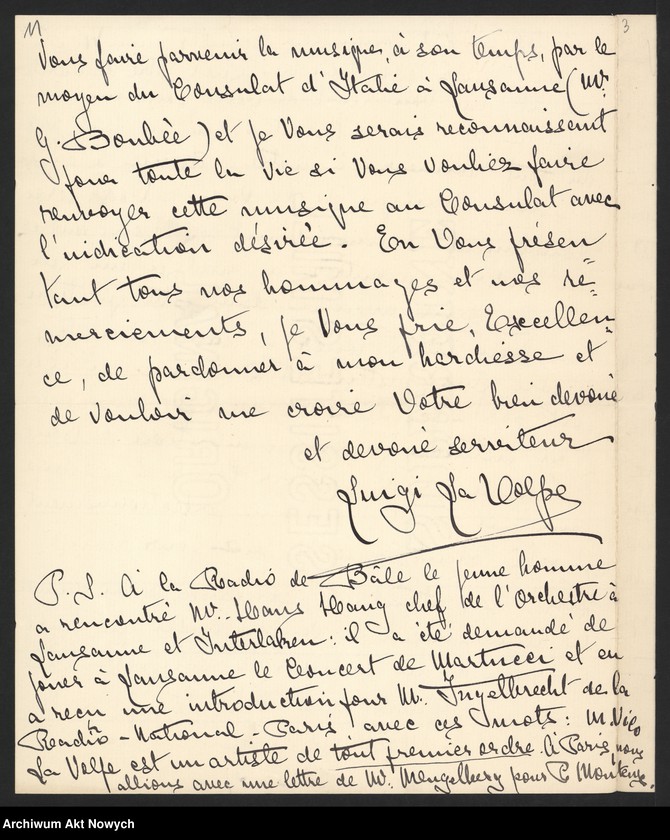 11
3
Vous faire parvenir la musique, à son temps, par le
moyen du Consulat d'Italie à Lausanne (Mr.
G. Bonbée) et je Vous serais reconnaissant
pour toute la vie si Vous vouliez faire
renvoyer cette musique au Consulat avec
l'indication désirée. En Vous présen
tant tous nos hommages et nos re=
merciements, je Vous prie, Excellen=
ce, de pardonner à mon hardiesse et
de vouloir me croire Votre bien devoué
et devoué serviteur
Luigi La Volpe
P.S. A la Radio de Bâle le jeune homme
a rencontré Mr. Hans Haug chef de l'Orchestre à
Lausanne et Interlaken: il a été demandé de
jouer à Lausanne le Concert de Martucci et en
a reçu une introduction pour M. Ingelbrecht de la
Radio-National-Paris avec ces mots: M. Nilo
La Volpe est un artiste de tout premier ordre. A Paris nous
allions avec une lettre de Mr. Mengelberg pour P. Monteux.
Archiwum Akt Nowych